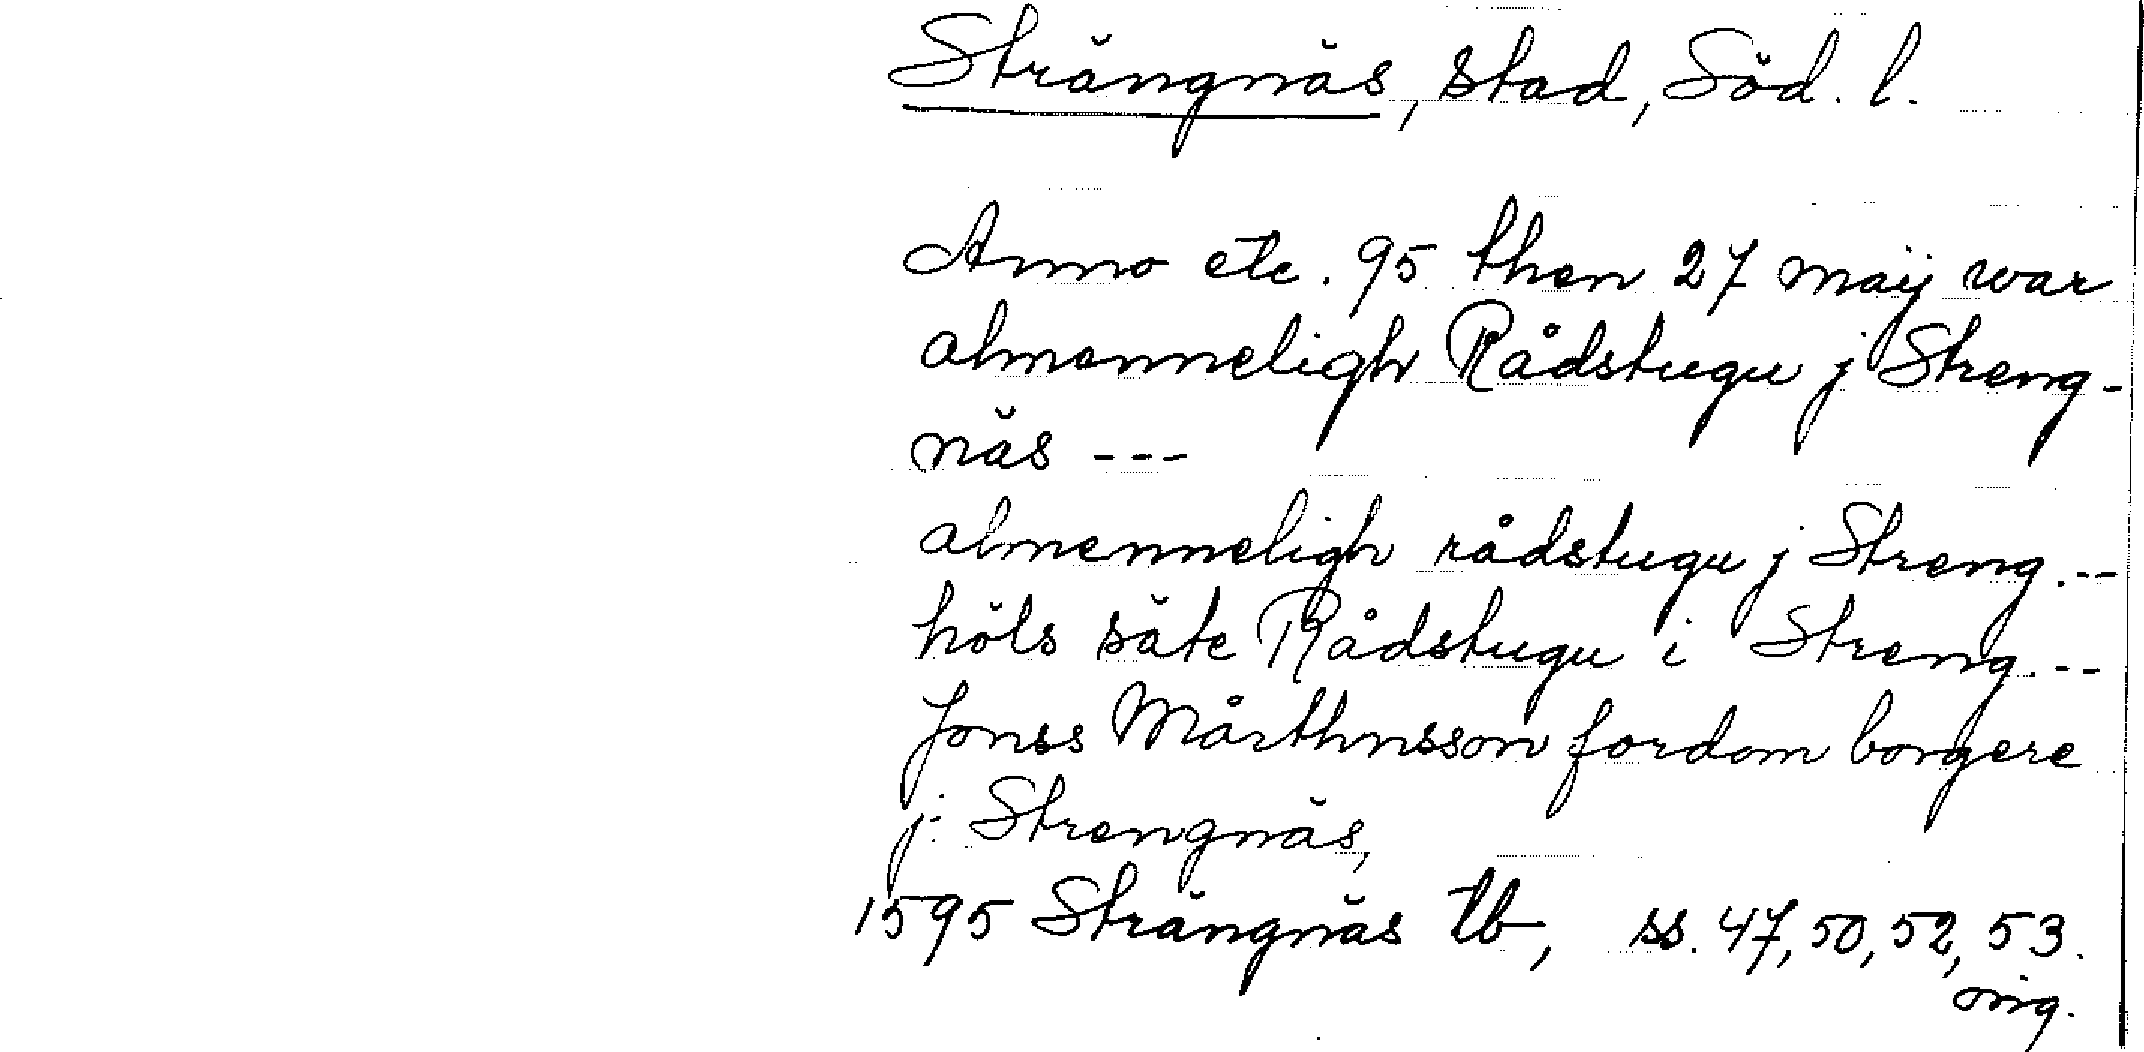 Strängnäs, stad, Söd. l.
Anno etc. 95 then 27 maÿ war
almenneligh Rådstugu j Streng-
näs ---
almenneligh rådstugu j Streng.--
höls säte Rådstugu i Streng.--
Jonss Mårthnsson fordom borgere
j. Strengnäs,
1595 Strängnäs tb, ss. 47, 50, 52, 53.
orig.